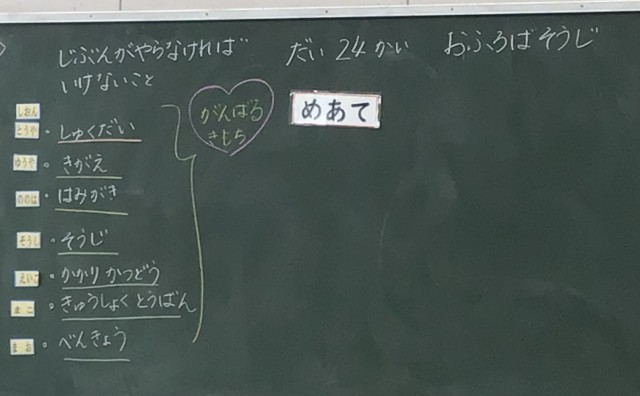 じぶんがやらなければ
いけないこと
だい 24 かい おふろばそうじ
がんばる
きもち
めあて
しおん
とうや ・しゅくだい
ゆうや ・きがえ
ののは ・はみがき
そうし ・そうじ
えいこ ・かかり かつどう
まこ ・きゅうしょく とうばん
まお ・べんきょう